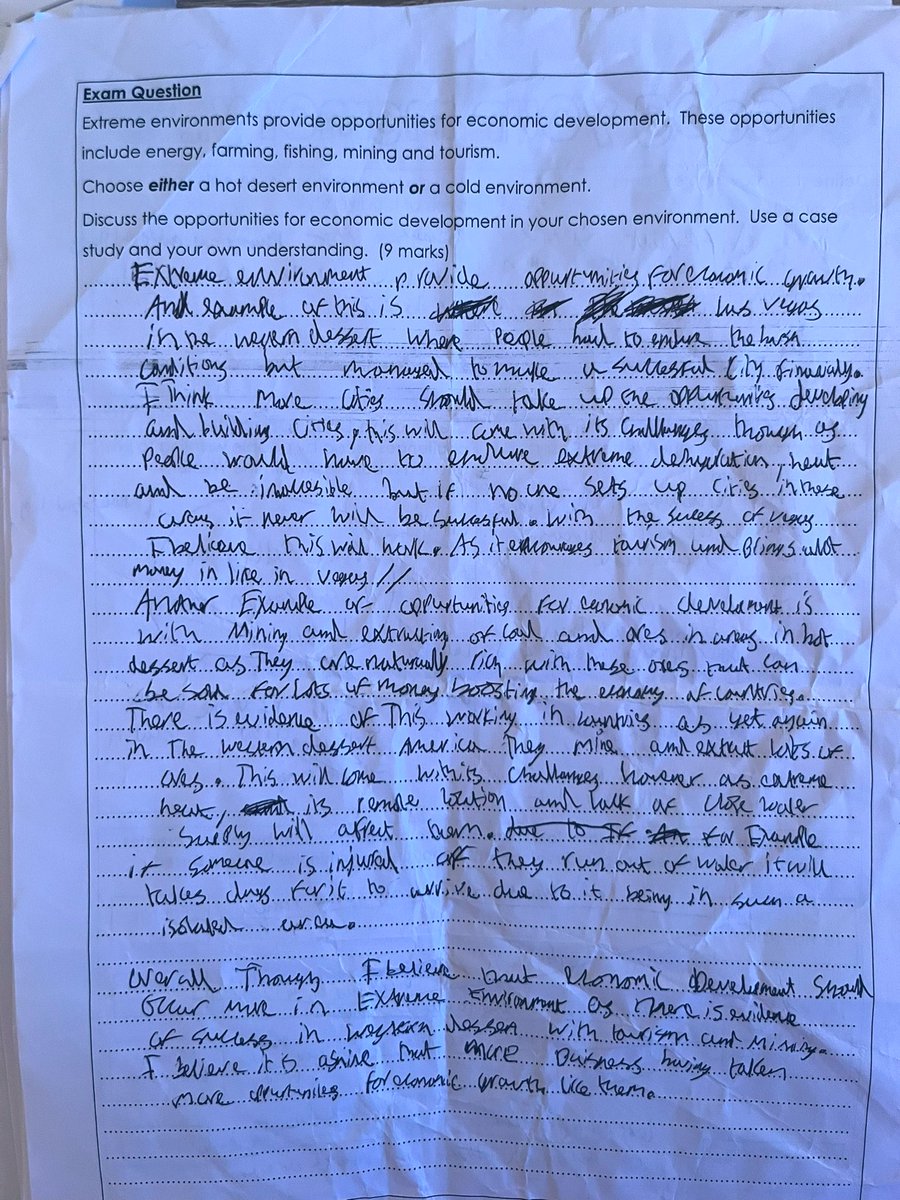 Exam Question
Extreme environments provide opportunities for economic development. These opportunities
include energy, farming, fishing, mining and tourism.
Choose either a hot desert environment or a cold environment.
Discuss the opportunities for economic development in your chosen environment. Use a case
study and your own understanding. (9 marks)
Extreme environment provide oppurtunities for economic growth.
And example of this is las vegas
in the western dessert where people had to endure the harsh
conditions but managed to make a successful city financialy.
I Think more cities should take up the oppurtunities developing
and building cities, this will come with its challenges though as
people would have to endure extreme dehydration, heat
and be inaccesible but if no one sets up cities in these
areas it never will be sucessful. With the sucess of vegas
I believe this will work. As it encourages tourism and brings alot
money in like in vegas //
Another Example of oppurtunities for economic development is
with Mining and extracting of coal and ores in areas in hot
dessert as They are naturally rich with these ores that can
be sold for lots of money boosting the economy of countries.
There is evidence of This working in countries as yet again
in The western dessert American They mine and extract lots of
ores. This will come with its challenges however as extreme
heat, its remote location and lack of close water
supply will affect them. For Example
if someone is injured or they run out of water it will
takes days for it to arrive due to it being in such a
isolated area.
Overall Though I believe that economic development should
Occur more in Extreme Environment as There is evidence
of success in western dessert with tourism and mining.
I believe its that more business having taken
more oppurtunities for economic growth like them.